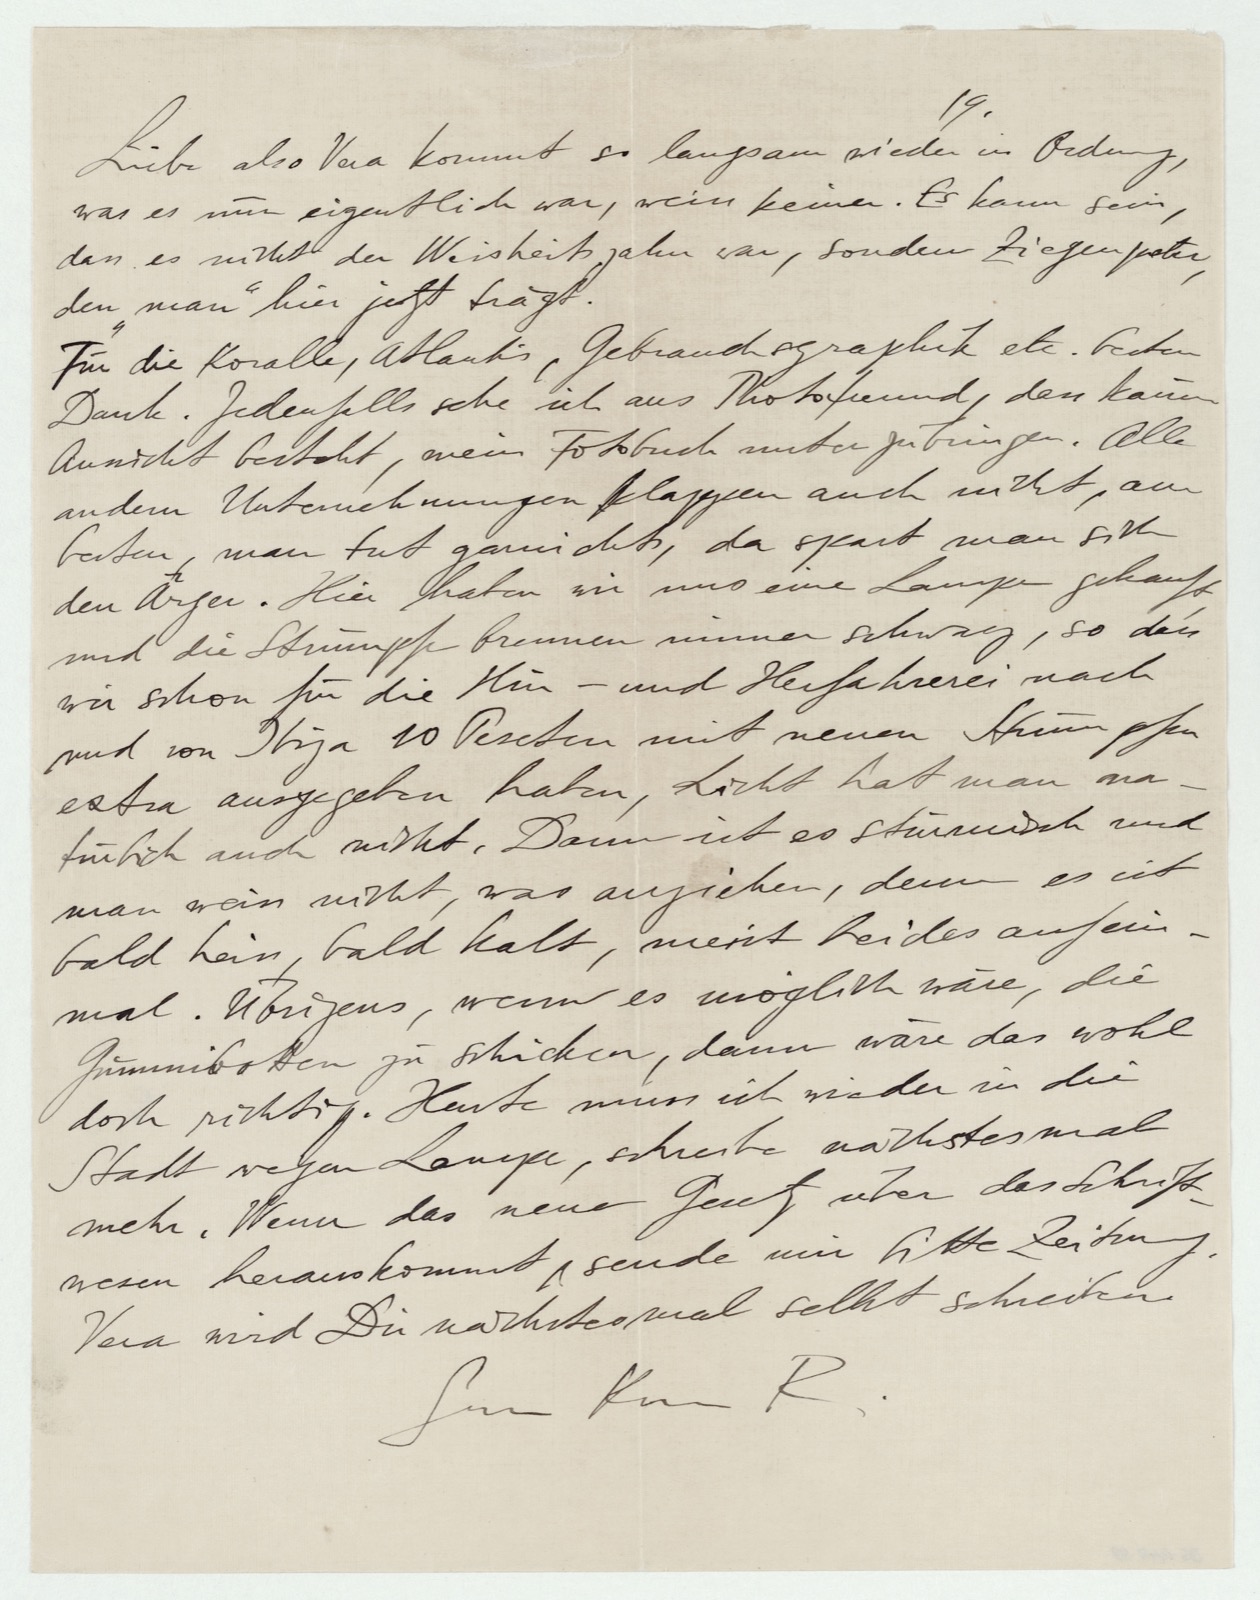 19.
Liebe also Vera kommt so langsam wieder in Ordnung,
was es nun eigentlich war, weiss keiner. Es kann sein,
dass es nicht der Weisheitszahn war, sondern Ziegenpeter,
den „man“ hier jetzt trägt.
Für die Koralle, Atlantis, Gebrauchsgraphik etc. besten
Dank. Jedenfalls sehe ich aus Photofreund, dass kaum
Aussicht besteht, mein Fotobuch unterzubringen. Alle
andern Unternehmungen klappen auch nicht, am
besten, man tut garnichts, da spart man sich
den Ärger. Hier haben wir uns eine Lampe gekauft
und die Strümpfe brennen immer schwarz, so dass
wir schon für die Hin- und Herfahrerei nach
und von Ibiza 10 Peseten mit neuen Strümpfen
extra ausgegeben haben, Licht hat man na-
türlich auch nicht. Dann ist es stürmisch und
man weiss nicht, was anziehen, denn es ist
bald heiss, bald kalt, meist beides aufein-
mal. Übrigens, wenn es möglich wäre, die
Gummibotten zu schicken, dann wäre das wohl
doch richtig. Heute muss ich wieder in die
Stadt wegen Lampe, schreibe nächstesmal
mehr. Wenn das neue Gesetz über das Schrift-
wesen herauskommt, sende mir bitte Zeitung.
Vera wird Dir nächstesmal selbst schreiben
R.